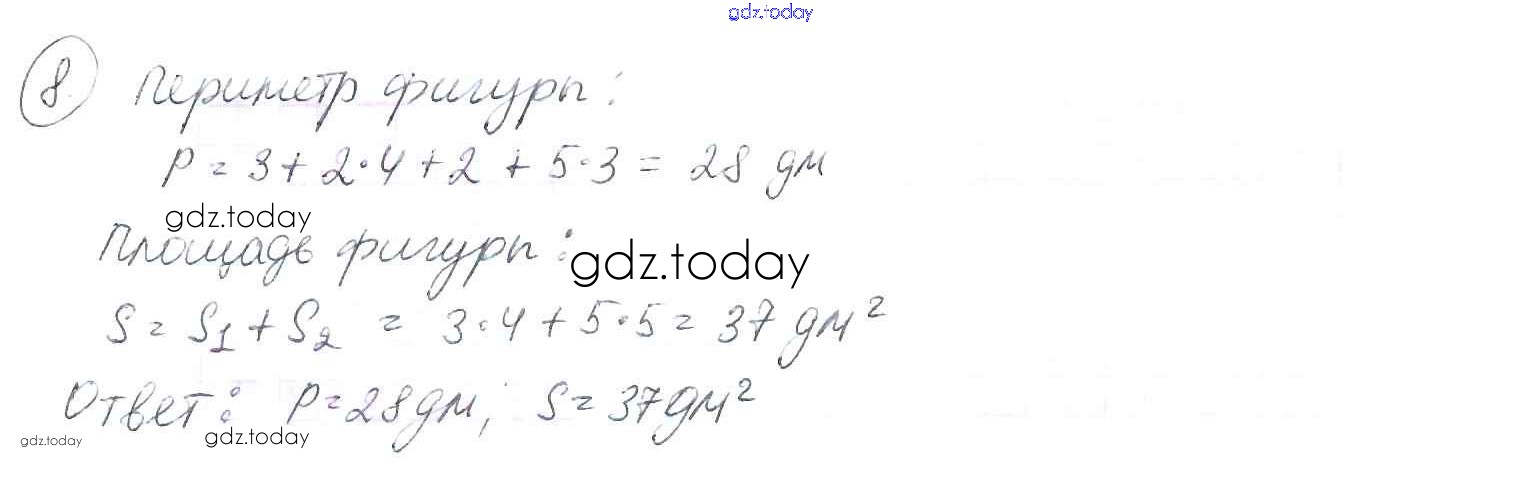 gdz.today
8 Периметр фигуры:
P = 3 + 2·4 + 2 + 5·3 = 28 дм
gdz.today
Площадь фигуры:
gdz.today
S = S₁ + S₂ = 3·4 + 5·5 = 37 дм²
Ответ: P = 28 дм; S = 37 дм²
gdz.today
gdz.today